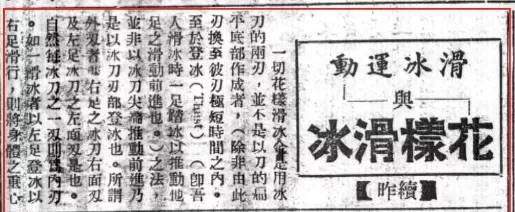 滑冰運動
與
花樣滑冰
【續昨】
一切花樣滑冰全是用冰
刀的兩刃，並不是以刀的扁
平底部作成者，（除非由此
刃換至彼刃極短時間之內。
至於登冰（Thust）（卽吾
人滑冰時一足踏冰以推動他
足之滑動前進也。）之法，
並非以冰刀尖端推動前進乃
是以冰刀刃部登冰也。所謂
外刃者卽右足之冰刀右面刃
及左足冰刀之左面刃是也。
自然每冰刀之一刃則為內刃
。如一滑冰者以左足登冰以
右足滑行，則將身體之重心